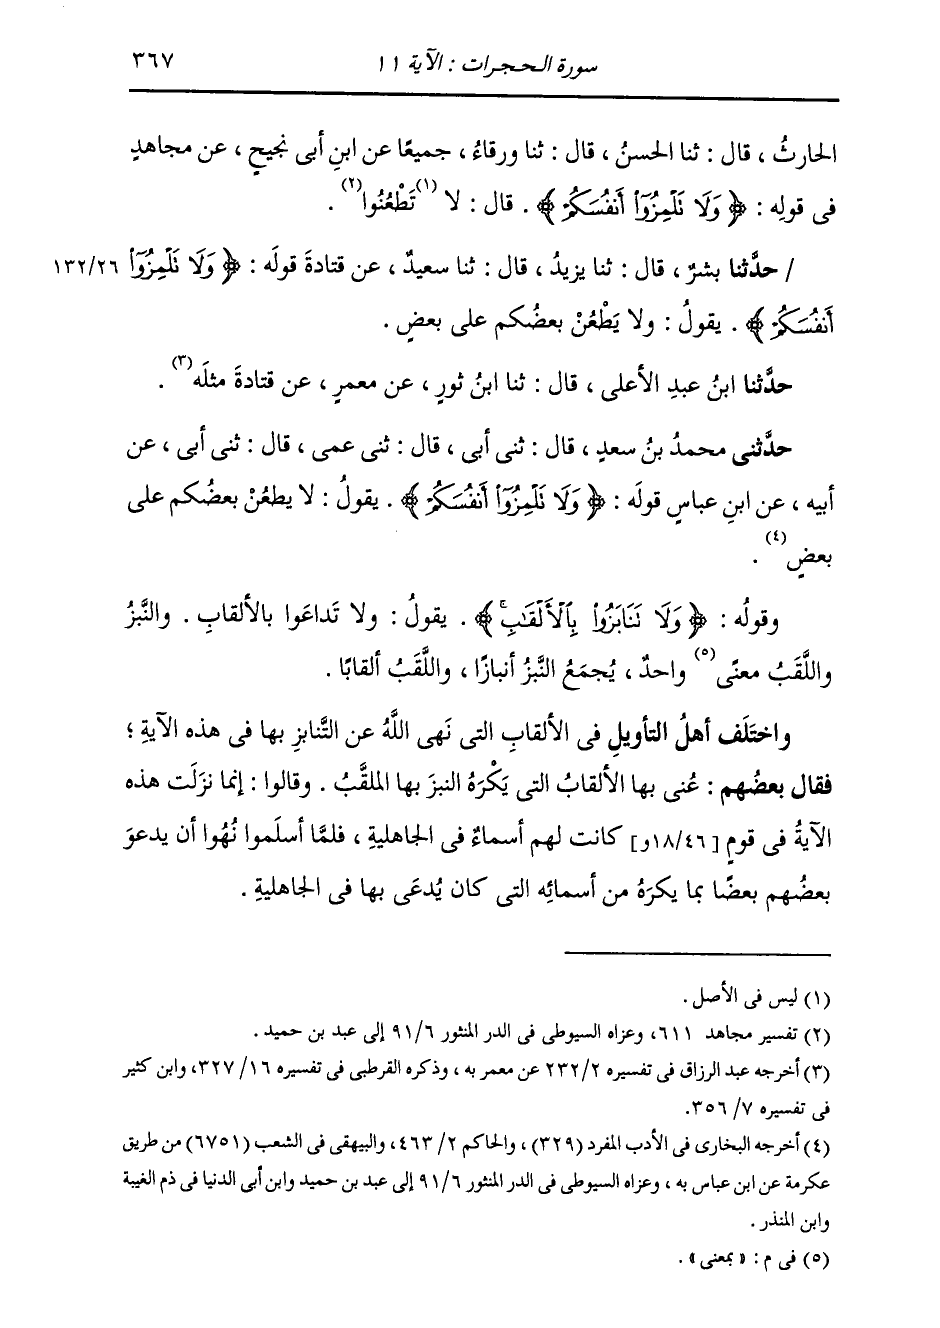 سورة الحجرات : الآية ١١ ٣٦٧
الحارثُ ، قال : ثنا الحسنُ ، قال : ثنا ورقاءُ ، جميعًا عن ابنِ أبى نجيحٍ ، عن مجاهدٍ
فى قولِه : ﴿ وَلَا نَلْمِزُوٓاْ أَنفُسَكُمْ ﴾ . قال : لا (١)تَطْعُنُوا(٢) .
/ حدَّثنا بشرٌ ، قال : ثنا يزيدُ ، قال : ثنا سعيدٌ ، عن قتادةَ قولَه : ﴿ وَلَا نَلْمِزُوٓاْ ١٣٢/٢٦
أَنفُسَكُمْ ﴾ . يقولُ : ولا يَطْعُنْ بعضُكم على بعضٍ .
حدَّثنا ابنُ عبدِ الأعلى ، قال : ثنا ابنُ ثورٍ ، عن معمرٍ ، عن قتادةَ مثلَه(٣) .
حدَّثنى محمدُ بنُ سعدٍ ، قال : ثنى أبى ، قال : ثنى عمى ، قال : ثنى أبى ، عن
أبيه ، عن ابنِ عباسٍ قولَه : ﴿ وَلَا نَلْمِزُوٓاْ أَنفُسَكُمْ ﴾ . يقولُ : لا يطعُنْ بعضُكم على
بعضٍ(٤) .
وقولُه : ﴿ وَلَا نَنَابَزُواْ بِٱلْأَلْقَٰبِۚ ﴾ . يقولُ : ولا تَداعَوا بالألقابِ . والنَّبْزُ
واللَّقَبُ معنًى(٥) واحدٌ ، يُجمَعُ النَّبْزُ أنبازًا ، واللَّقَبُ ألقابًا .
واختَلَف أهلُ التأويلِ فى الألقابِ التى نَهى اللَّهُ عن التَّنابزِ بها فى هذه الآيةِ ؛
فقال بعضُهم : عُنى بها الألقابُ التى يَكْرَهُ النبزَ بها الملقَّبُ . وقالوا : إنما نزَلَت هذه
الآيةُ فى قومٍ [١٨/٤٦و] كانت لهم أسماءٌ فى الجاهليةِ ، فلمَّا أسلَموا نُهُوا أن يدعوَ
بعضُهم بعضًا بما يكرَهُ من أسمائِه التى كان يُدعَى بها فى الجاهليةِ .
(١) ليس فى الأصل .
(٢) تفسير مجاهد ٦١١، وعزاه السيوطى فى الدر المنثور ٩١/٦ إلى عبد بن حميد .
(٣) أخرجه عبد الرزاق فى تفسيره ٢٣٢/٢ عن معمر به ، وذكره القرطبى فى تفسيره ٣٢٧/١٦، وابن كثير
فى تفسيره ٧/ ٣٥٦.
(٤) أخرجه البخارى فى الأدب المفرد (٣٢٩) ، والحاكم ٢/ ٤٦٣، والبيهقى فى الشعب (٦٧٥١) من طريق
عكرمة عن ابن عباس به ، وعزاه السيوطى فى الدر المنثور ٩١/٦ إلى عبد بن حميد وابن أبى الدنيا فى ذم الغيبة
وابن المنذر .
(٥) فى م : « بمعنى » .